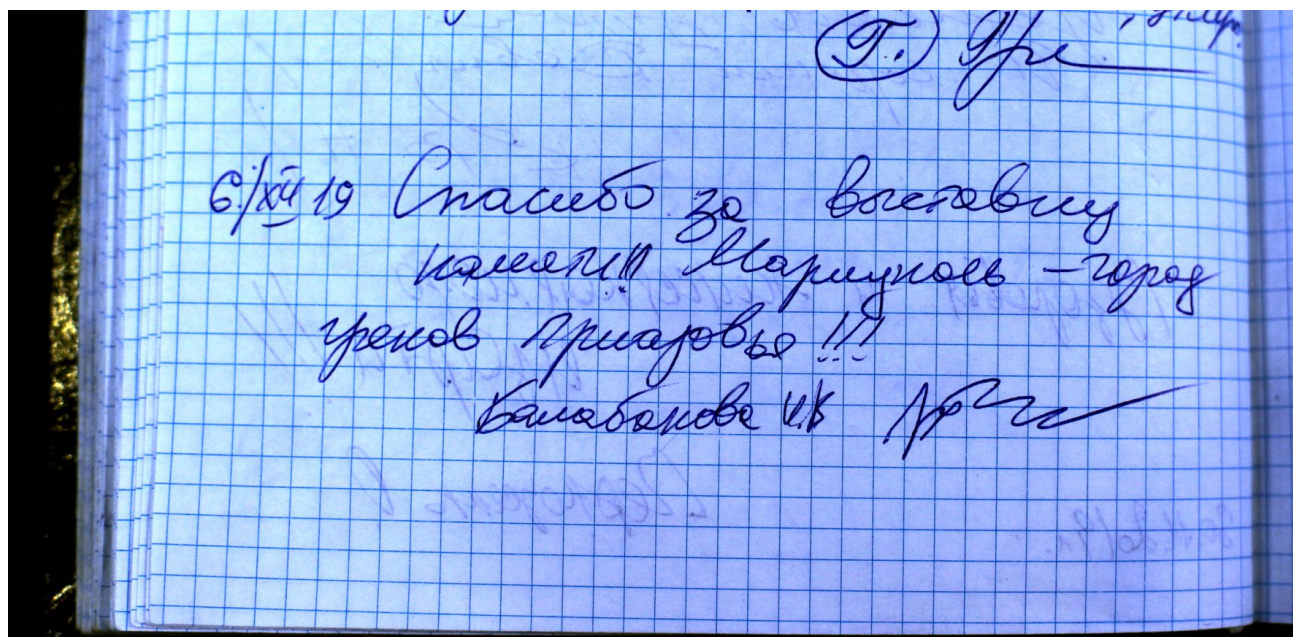 Г.
6/XII 19 Спасибо за выставку
памяти!!! Мариуполь – город
греков Приазовья!!!
Балабанова И.В